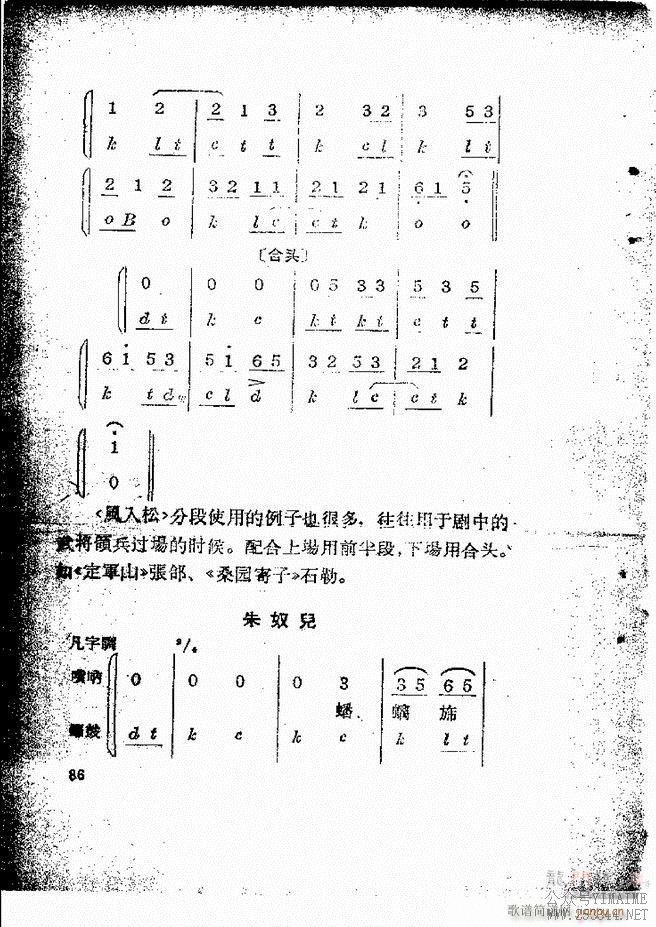 1 2 2 1 3 2 3 2 3 5 3
k l t c t t k c l k l t
2 1 2 3 2 1 1 2 1 2 1 6 1 5
o B o k l c c t k o o
〔合头〕
0 0 0 0 5 3 3 5 3 5
d t k c k t k t c t t
6 1 5 3 5 1 6 5 3 2 5 3 2 1 2
k t d c l d k l c c t k
1
0
《風入松》分段使用的例子也很多，往往用于剧中的
武将領兵过場的时候。配合上場用前半段，下場用合头。
如《定軍山》張郃、《桑园寄子》石勒。
朱奴兒
凡字調 2/4
嗩吶 0 0 0 0 3 3 5 6 5
蟠 螭 旆
鑼鼓 d t k c k c k l t
86
歌谱简谱网
公众号YIMAIME
jianpu.cn